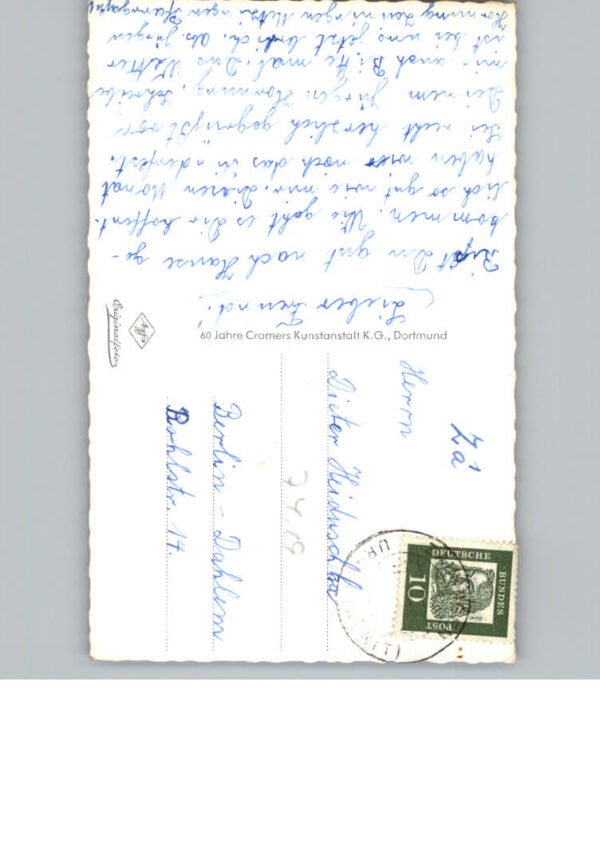 Lieber Freund!
Bist Du gut nach Hause ge-
kommen. Wie geht es Dir hoffent.
lich so gut wie mir. Diesen Monat
haben wir noch das Kinderfest.
Sei recht herzlich gegrüßt von
Deinem Jürgen Hornung. Schreibe
mir auch Bitte mal. Das Wetter
ist bei uns jetzt
Hornung
60 Jahre Cramers Kunstanstalt K.G., Dortmund
Agfa
Originalfoto
Herrn
Dieter Heiduschka
Berlin-Dahlem
Bohlstr. 14.
DEUTSCHE
BUNDES
POST
10